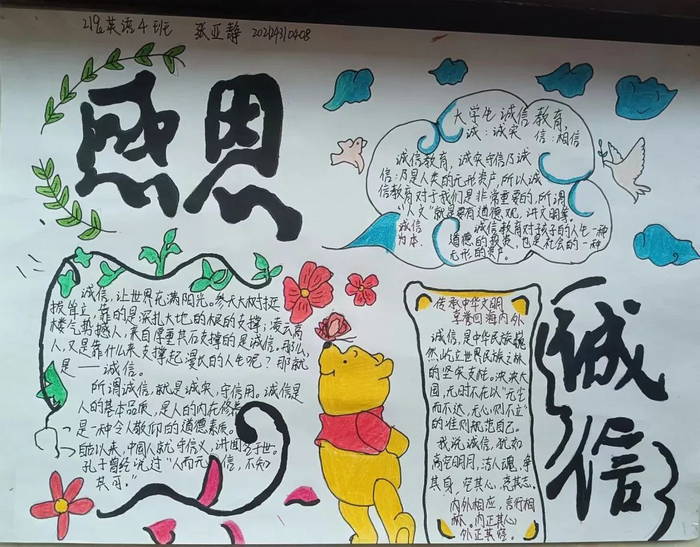 21级英语4班 张亚静 20214310408
感恩
大学生诚信教育,
诚:诚实 信:相信
诚信教育,诚实守信乃诚
信:乃是人类的无形资产,所以诚
信教育对于我们是非常重要的,所谓
"人文"就是要有道德观,讲文明等,
诚信 诚信教育对孩子的人生一种
为本. 道德的教养,也是社会的一种
无形的资产。
诚信,让世界充满阳光。参天大树挺
拔耸立,靠的是深扎大地的根的支撑;凌云高
楼气势撼人,来自厚重基石支撑的是诚信。那么,
人,又是靠什么来支撑起漫长的人生呢?那就
是——诚信。
所谓诚信,就是诚实,守信用。诚信是
人的基本品质,是人的内在修养
是一种令人敬仰的道德素质。
自古以来,中国人就守信义,讲
孔子曾经说过"人而无信,不知
其可."
传承中华文明
享誉四海内外
诚信,是中华民族巍
然屹立世界民族之林
的坚实支柱。泱泱大
国,无时不在以"元宝
而不达,无心则不立"
的准则规范自己。
我说诚信,犹如
高空明月,沽人魂,争
其身,定其心,亮其志。
内外相应,言行相
称。内正其心
外正其容。
诚信